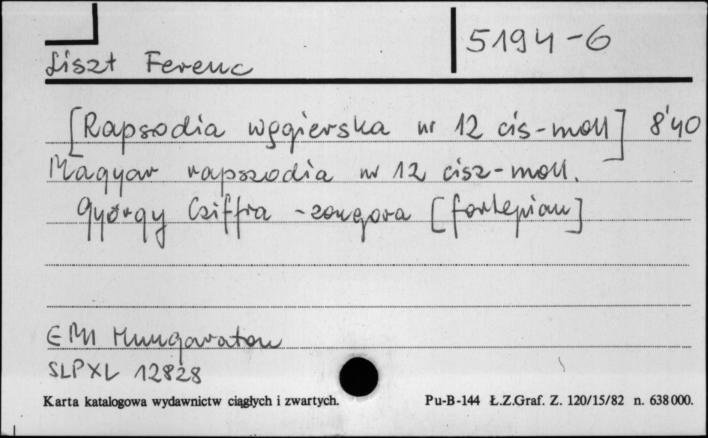 5194-6
Liszt Ferenc
[Rapsodia węgierska nr 12 cis-moll] 8'40
Magyar rapszodia nr 12 cisz-moll.
György Cziffra - zongora [fortepian]
EMI Hungaroton
SLPXL 12828
Karta katalogowa wydawnictw ciągłych i zwartych. Pu-B-144 Ł.Z.Graf. Z. 120/15/82 n. 638 000.